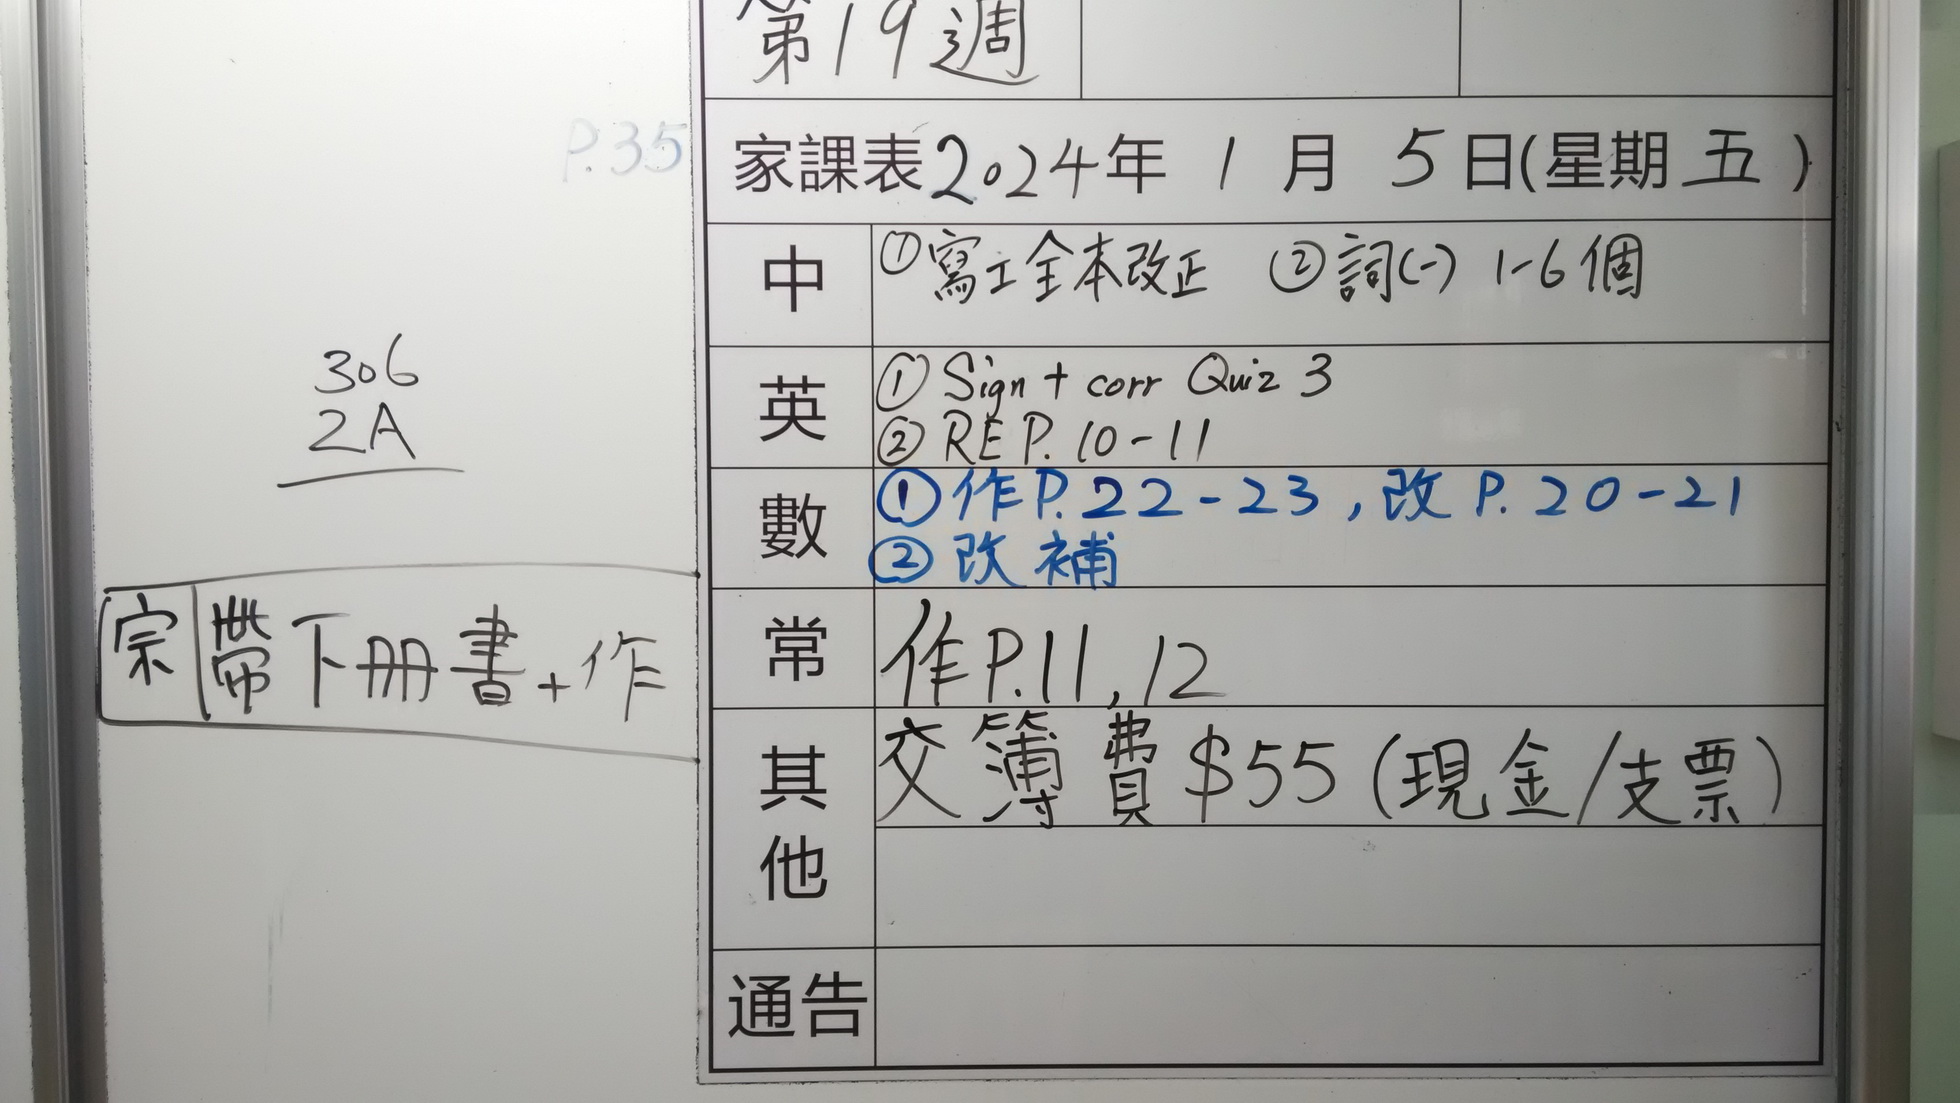 第19週
P.35
家課表2024年 1 月 5 日(星期 五 )
中 ①寫工全本改正 ②詞(一) 1-6個
英 ① Sign + corr Quiz 3
② RE P. 10-11
數 ① 作P. 22-23, 改 P. 20-21
② 改 補
常 作P.11, 12
其他 交簿費 $55 (現金/支票)
通告
306
2A
宗 帶下冊書+作